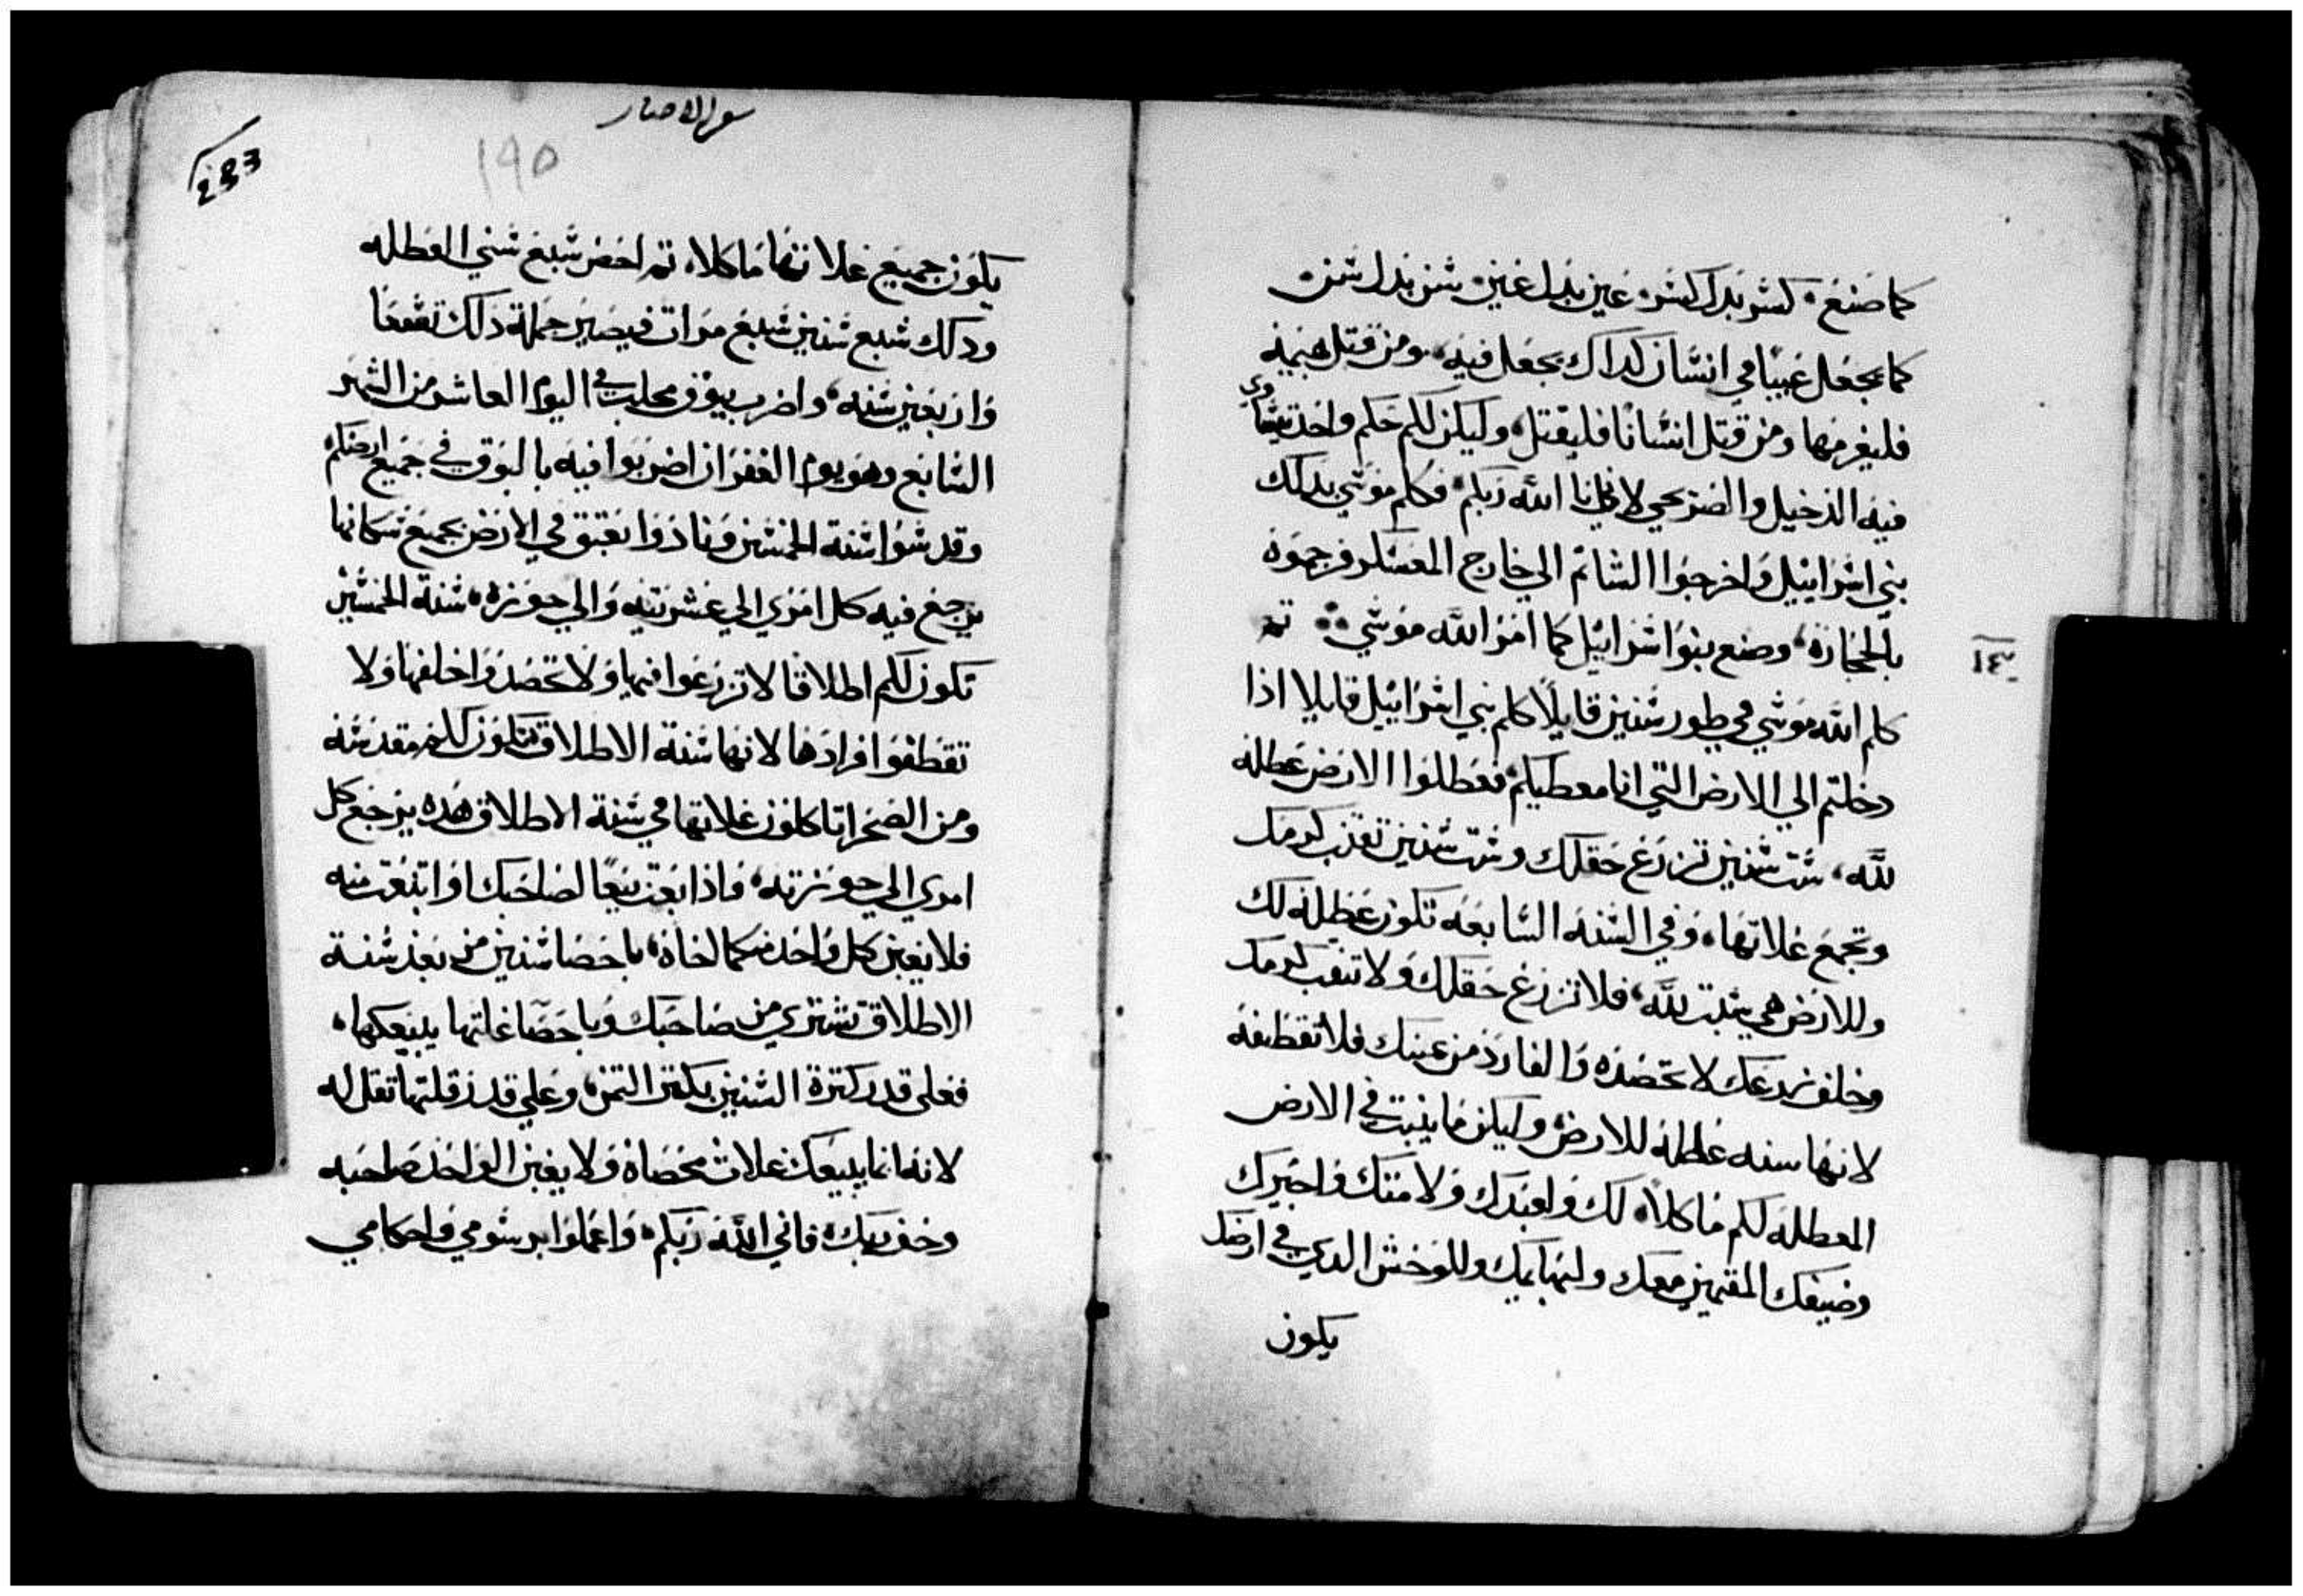 كما صنع، كسر بدل كسر، عين بدل عين، سن بدل سن،
كما يجعل عيبًا في انسان كداك يجعل فيه، ومن قتل بهيمة
فليغرمها ومن قتل انسانًا فليقتل، وليكن لكم حكم واحد يتساوي
فيه الدخيل والصريحي لاني انا الله ربكم، فكلم موسي بدلك
بني اسراييل واخرجوا الشاتم الي خارج المعسكر فرجموه
بالحجارة، وصنع بنوا اسراييل كما امر الله موسي، تم
١٤
كلم الله موسي في طور سنين قايلًا كلم بني اسراييل قايلا اذا
دخلتم الي الارض التي انا معطيكم، فعطلوا الارض عطله
لله، ست سنين تزرع حقلك وست سنين تقنب كرمك
وتجمع غلاتها، وفي السنه السابعه تكون عطله لك
وللارض هي سبت لله، فلا تزرع حقلك ولا تقنب كرمك
وخلف زرعك لا تحصده والفارد من عنبك فلا تقطفه
لانها سنه عطله للارض، وليكن ما ينبت في الارض
المعطله لكم ماكلا، لك ولعبدك ولامتك واجيرك
وضيفك المقيمين معك ولبهايمك وللوحش الدي في ارضك
يكون
سفر الاحبار
١٩٥
233
يكون جميع غلاتها ماكلا، تم احص سبع سني العطله
ودلك سبع سنين سبع مرات فيصير جملة دلك تسعًا
واربعين سنه، واضرب ببوق مجلب في اليوم العاشر من الشهر
السابع وهو يوم الغفران اضربوا فيه بالبوق في جميع ارضكم
وقدسوا سنة الخمسين ونادوا بعتق في الارض بجميع سكانها
يرجع فيه كل امري الي عشرته والي حوزه، سنة الخمسين
تكون لكم اطلاقًا لا تزرعوا فيها ولا تحصدوا خلفها ولا
تقطفوا افرادها لانها سنة الاطلاق تكون لكم مقدسه
ومن الصحرا تاكلون غلاتها في سنة الاطلاق هده يرجع كل
امري الي حوزته، فاذا بعت بيعًا لصاحبك او ابتعت منه
فلا يغبن كل واحد منكما اخاه، باحصا سنين من بعد سنة
الاطلاق تشتري من صاحبك وباحصا غلتها يبيعكها،
فعلي قدر كثرة السنين يكثر الثمن، وعلي قدر قلتها تقلله
لانه انما يبيعك غلات محصاة ولا يغبن الواحد صاحبه
وخف ربك، فاني الله ربكم، واعملوا برسومي واحكامي